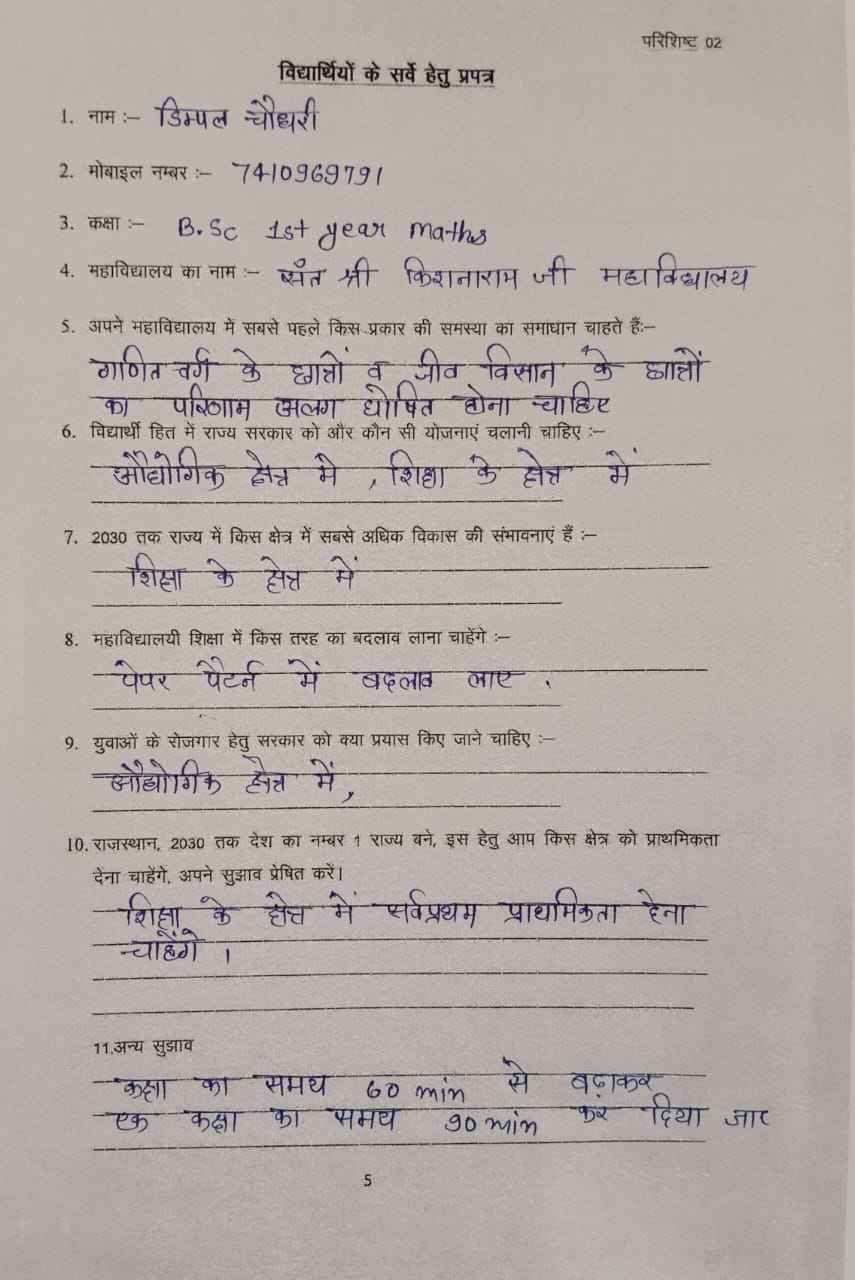 परिशिष्ट 02
विद्यार्थियों के सर्वे हेतु प्रपत्र
1. नाम :- डिम्पल चौधरी
2. मोबाइल नम्बर :- 7410969791
3. कक्षा :- B.Sc 1st year maths
4. महाविद्यालय का नाम :- संत श्री किशनाराम जी महाविद्यालय
5. अपने महाविद्यालय में सबसे पहले किस प्रकार की समस्या का समाधान चाहते हैं:-
गणित वर्ग के छात्रों व जीव विज्ञान के छात्रों
का परिणाम अलग घोषित होना चाहिए
6. विद्यार्थी हित में राज्य सरकार को और कौन सी योजनाएं चलानी चाहिए :-
औद्योगिक क्षेत्र मे , शिक्षा के क्षेत्र में
7. 2030 तक राज्य में किस क्षेत्र में सबसे अधिक विकास की संभावनाएं हैं :-
शिक्षा के क्षेत्र में
8. महाविद्यालयी शिक्षा में किस तरह का बदलाव लाना चाहेंगे :-
पेपर पैटर्न में बदलाव लाए .
9. युवाओं के रोजगार हेतु सरकार को क्या प्रयास किए जाने चाहिए :-
औद्योगिक क्षेत्र में,
10. राजस्थान, 2030 तक देश का नम्बर 1 राज्य बने, इस हेतु आप किस क्षेत्र को प्राथमिकता
देना चाहेंगे, अपने सुझाव प्रेषित करें।
शिक्षा के क्षेत्र में सर्वप्रथम प्राथमिकता देना
चाहेंगे ।
11.अन्य सुझाव
कक्षा का समय 60 min से बढ़ाकर
एक कक्षा का समय 90 min कर दिया जाए
5